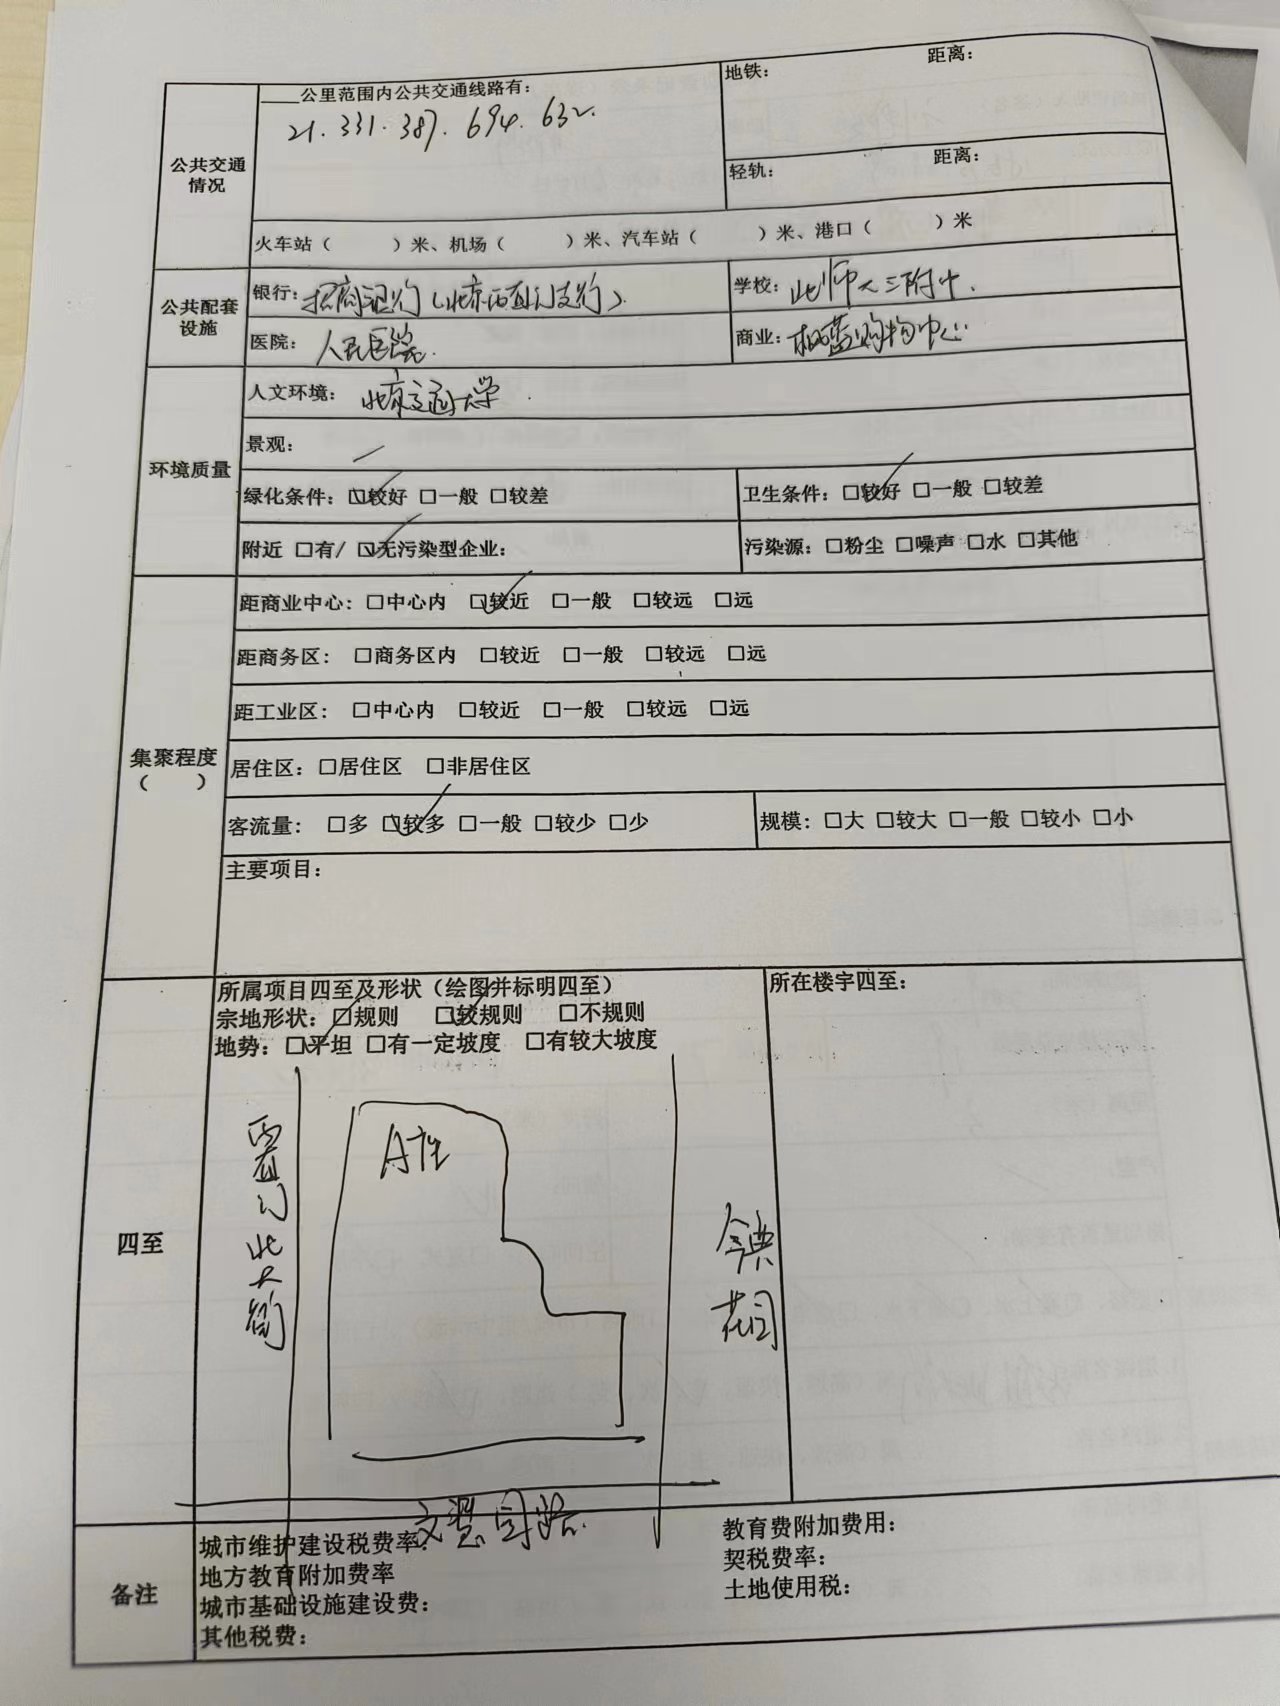 ____公里范围内公共交通线路有：
21. 331. 387. 694. 632.
地铁： 距离：
轻轨： 距离：
公共交通
情况
火车站（ ）米、机场（ ）米、汽车站（ ）米、港口（ ）米
公共配套
设施
银行：招商银行（北京西直门支行）.
学校：北师大三附中.
医院：人民医院.
商业：购物中心
环境质量
人文环境：北京交通大学.
景观：
绿化条件：☑较好 □一般 □较差
卫生条件：☑较好 □一般 □较差
附近 □有/ ☑无污染型企业：
污染源：□粉尘 □噪声 □水 □其他
集聚程度
（ ）
距商业中心：□中心内 ☑较近 □一般 □较远 □远
距商务区： □商务区内 □较近 □一般 □较远 □远
距工业区： □中心内 □较近 □一般 □较远 □远
居住区：□居住区 □非居住区
客流量： □多 ☑较多 □一般 □较少 □少
规模：□大 □较大 □一般 □较小 □小
主要项目：
四至
所属项目四至及形状（绘图并标明四至）
宗地形状：☑规则 ☑较规则 □不规则
地势：☑平坦 □有一定坡度 □有较大坡度
所在楼宇四至：
西直门北大街
A座
今典
花园
文慧园路
备注
城市维护建设税费率：
地方教育附加费率
城市基础设施建设费：
其他税费：
教育费附加费用：
契税费率：
土地使用税：